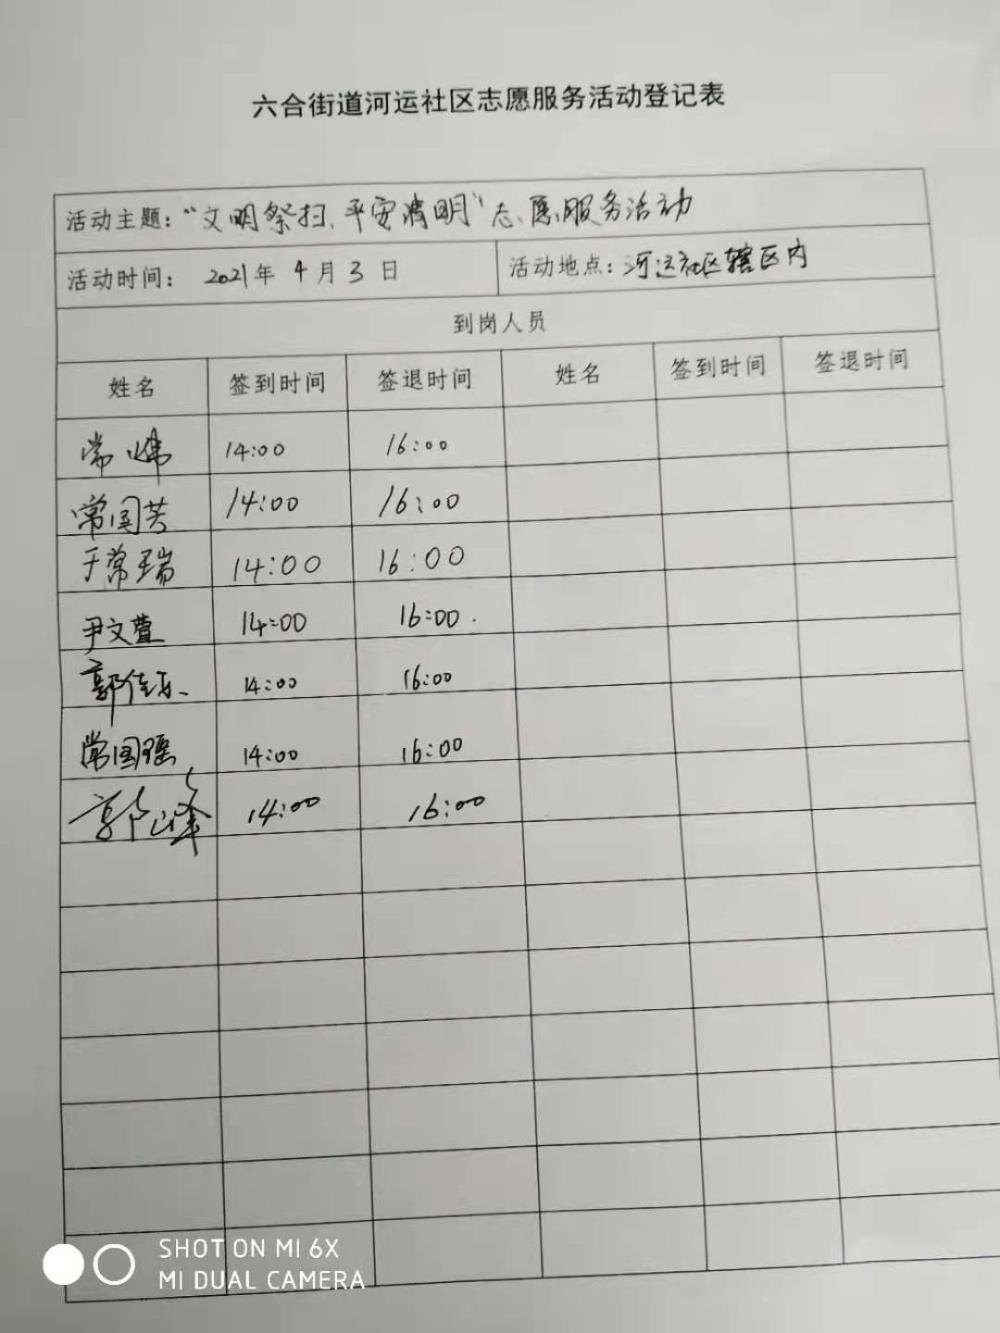 六合街道河运社区志愿服务活动登记表
活动主题：“文明祭扫、平安清明”志愿服务活动
活动时间： 2021年 4月 3日 活动地点：河运社区辖区内
到岗人员
姓名 签到时间 签退时间 姓名 签到时间 签退时间
常炜 14:00 16:00
常国芳 14:00 16:00
于常瑞 14:00 16:00
尹文萱 14:00 16:00.
郭佳乐 14:00 16:00
常国瑶 14:00 16:00
郭峰 14:00 16:00
SHOT ON MI 6X
MI DUAL CAMERA